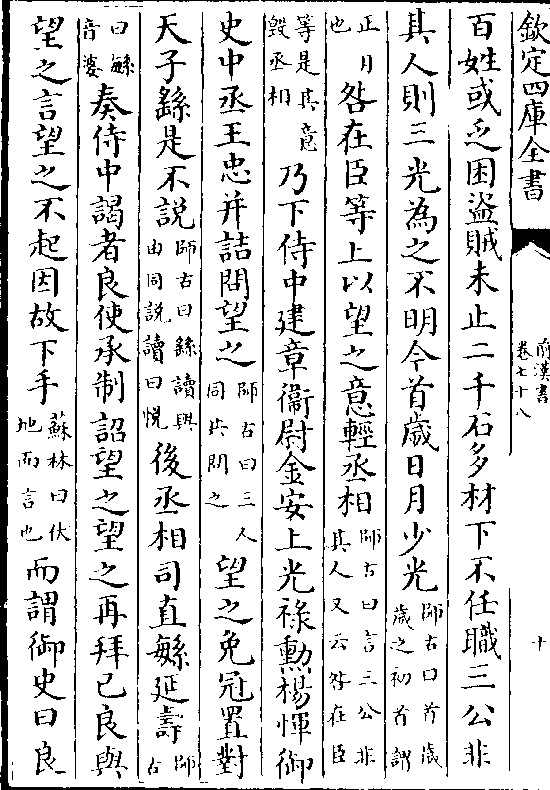 欽定四庫全書
前漢書
卷七十八
十
百姓或乏困盜賊未止二千石多材下不任職三公非
其人則三光為之不明今首歲日月少光師古曰首歲歲之初首謂
正月也咎在臣等上以望之意輕丞相師古曰言三公非其人又云咎在臣
等是其意毀丞相乃下侍中建章衞尉金安上光祿勲楊惲御
史中丞王忠并詰問望之師古曰三人同共問之望之免冠置對
天子繇是不說師古曰繇讀與由同説讀曰悅後丞相司直繁延壽師古
曰繁音婆奏侍中謁者良使承制詔望之望之再拜已良與
望之言望之不起因故下手蘇林曰伏地而言也而謂御史曰良